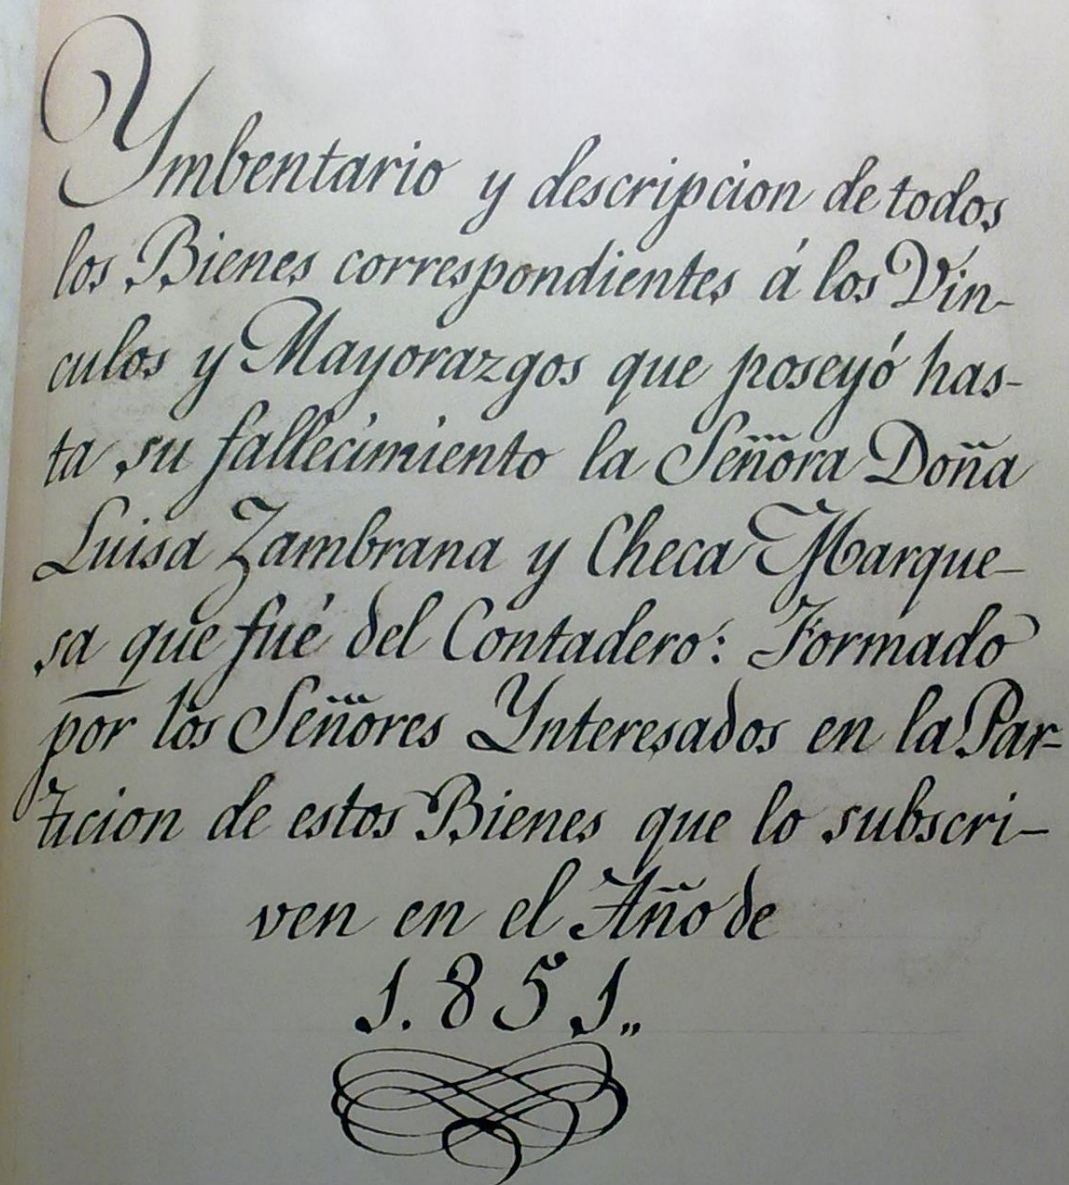 Ymbentario y descripcion de todos
los Bienes correspondientes á los Vín-
culos y Mayorazgos que poseyó has-
ta su fallecimiento la Señora Doña
Luisa Zambrana y Checa Marque-
sa que fué del Contadero: Formado
por los Señores Ynteresados en la Par-
ticion de estos Bienes que lo subscri-
ven en el Año de
1.851„